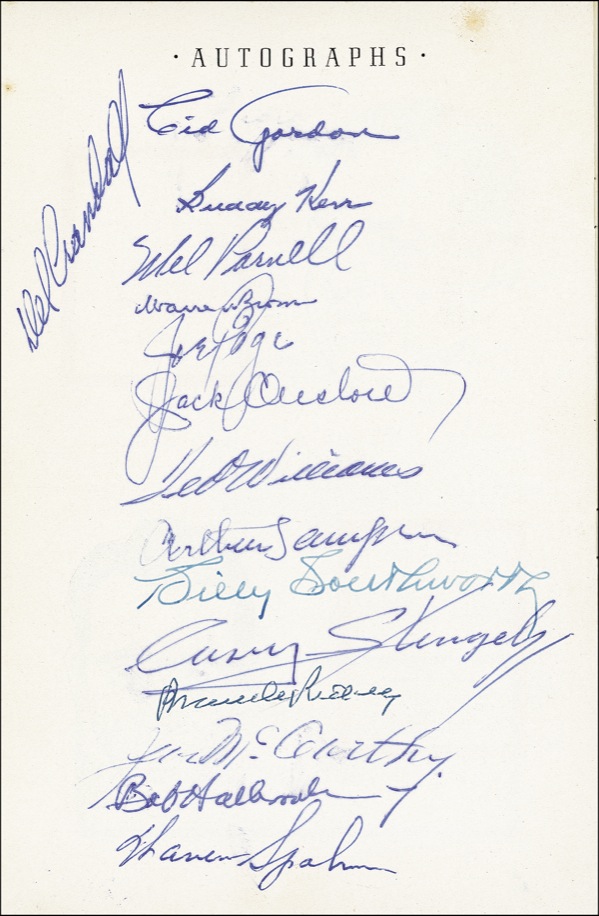 · AUTOGRAPHS ·
Del Crandall
Sid Gordon
Buddy Kerr
Mel Parnell
Joe Page
Jack Onslow
Ted Williams
Arthur Sampson
Billy Southworth
Casey Stengel
Joe McCarthy
Bob Holbrook
Warren Spahn